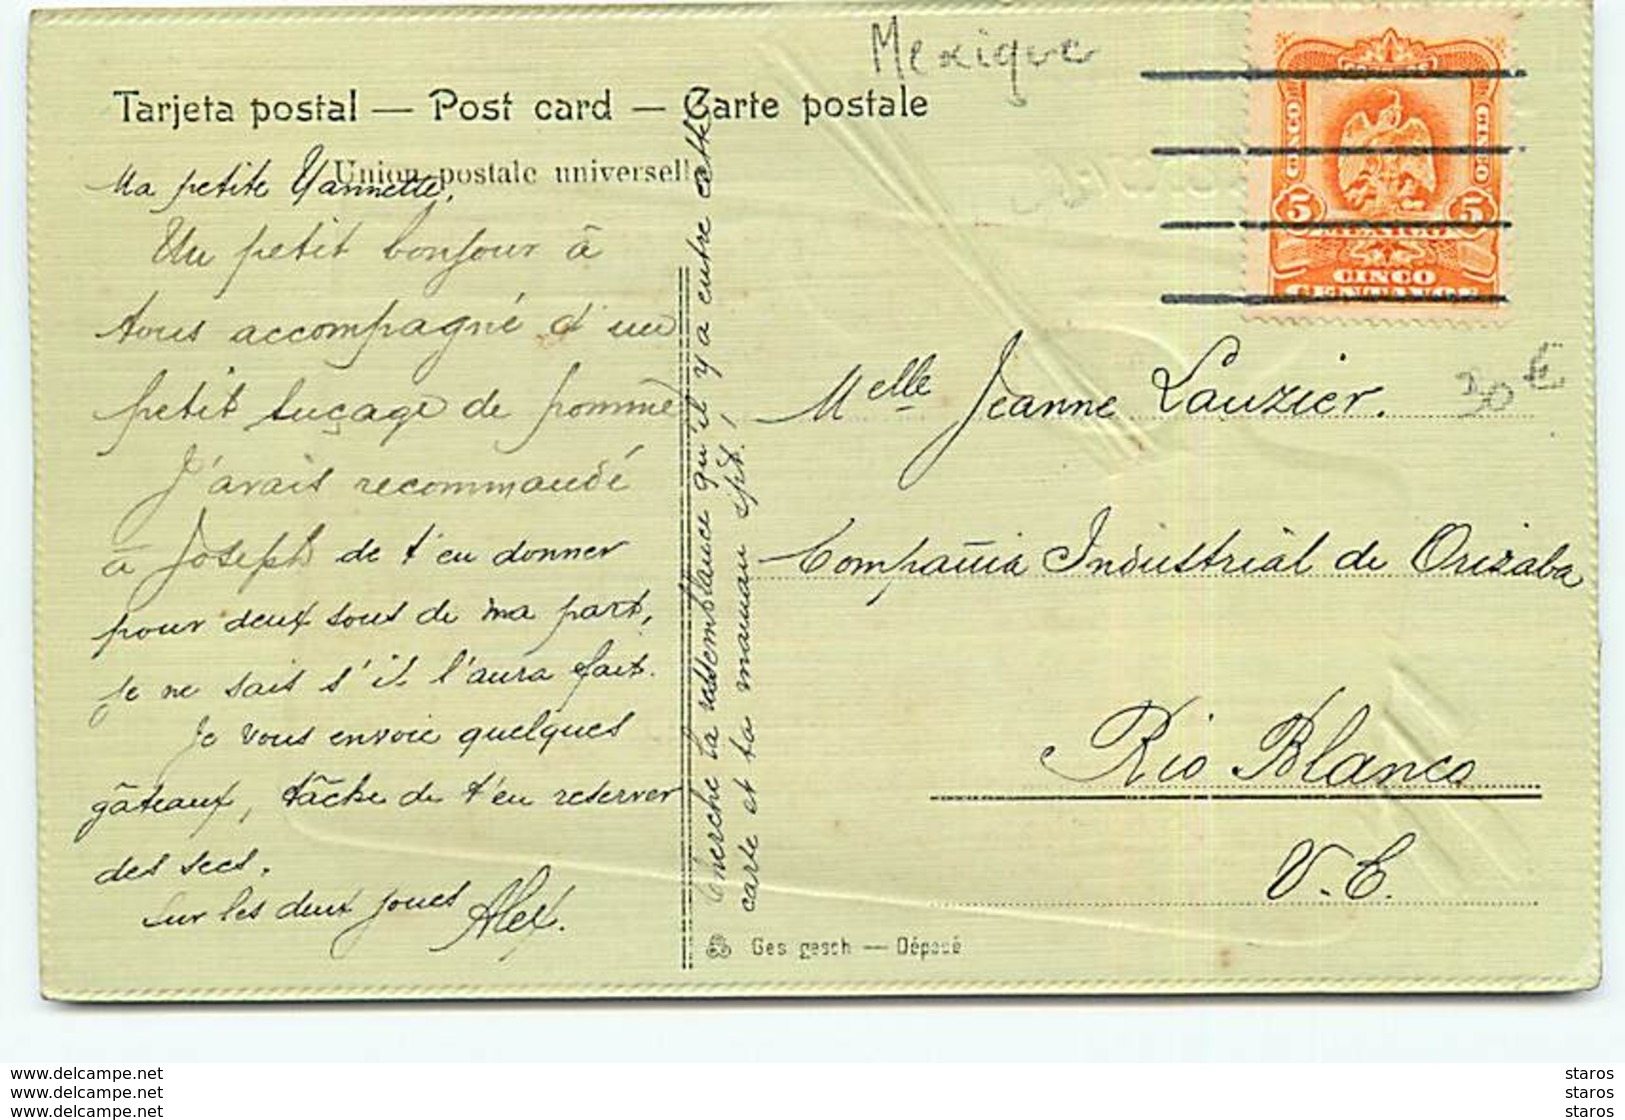 Mexique
Tarjeta postal — Post card — Carte postale
Union postale universelle
CORREOS
CINCO
CINCO
5
5
MEXICO
CINCO
CENTAVOS
Ma petite Yannette,
Un petit bonjour à
tous accompagné d'un
petit suçage de pomme
J'avais recommandé
à Joseph de t'en donner
pour deux sous de ma part,
je ne sais s'il l'aura fait.
Je vous envoie quelques
gâteaux, tâche de t'en reserver
des secs.
Sur les deux joues Alex.
Cherche la ressemblance qu'il y a entre cette
carte et ta maman
Melle Jeanne Lauzier.
30 €
Compañia Industrial de Orizaba
Rio Blanco
V. C.
Ges gesch — Déposé
www.delcampe.net
www.delcampe.net
www.delcampe.net
staros
staros
staros